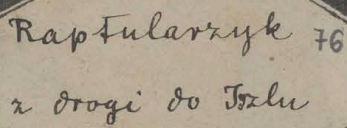 Raptularzyk 76
z drogi do Iszlu